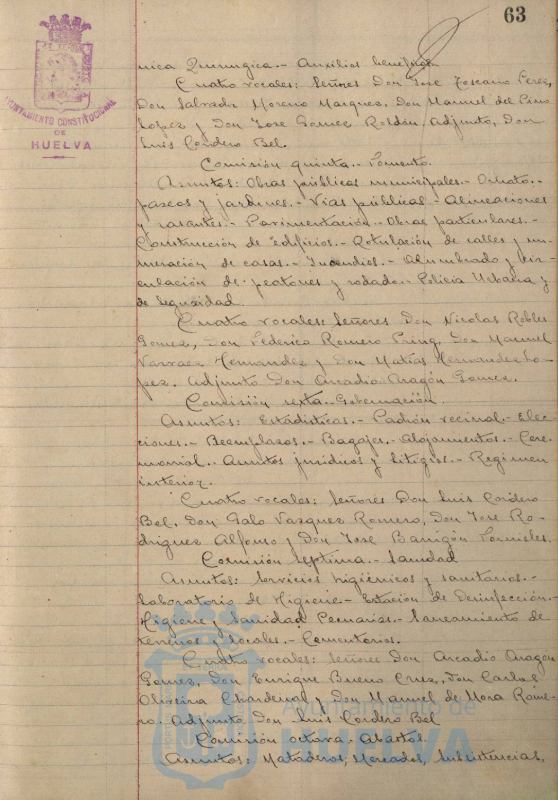 63
AYUNTAMIENTO CONSTITUCIONAL
DE
HUELVA
nica Quirurgica.- Auxilios beneficos
Cuatro vocales: Señores Don Jose Toscano Perez,
Don Salvador Moreno Marquez, Don Manuel del Pino
Lopez y Don Jose Gomez Roldán. Adjunto, Don
Luis Cordero Bel.
Comisión quinta.- Fomento.
Asuntos: Obras públicas municipales.- Ornato.-
paseos y jardines.- Vias públicas.- Alineaciones
y rasantes.- Pavimentación.- Obras particulares.-
Construcción de edificios.- Rotulación de calles y nu-
meración de casas.- Incendios.- Alumbrado y cir-
culación de peatones y rodado.- Policia Urbana y
de Seguridad.
Cuatro vocales: Señores Don Nicolas Robles
Gomez, Don Federico Romero Pring, Don Manuel
Narvaez Hernandez y Don Matías Hernandez Lo-
pez. Adjunto Don Arcadio Aragón Gomez.
Comisión sexta.- Gobernación.
Asuntos: Estadisticas.- Padrón vecinal.- Elec-
ciones.- Reemplazos.- Bagajes.- Alojamientos.- Cere-
monial.- Asuntos juridicos y litigios.- Regimen
interior.
Cuatro vocales: Señores Don Luis Cordero
Bel, Don Galo Vazquez Romero, Don Jose Ro-
driguez Alfonso y Don Jose Barrigón Fornieles.
Comisión septima.- Sanidad
Asuntos: Servicios higiénicos y sanitarios.-
Laboratorio de Higiene.- Estación de Desinfección.-
Higiene y Sanidad Pecuarias.- Saneamiento de
terrenos y locales.- Cementerios.
Cuatro vocales: Señores Don Arcadio Aragon
Gomez, Don Enrique Bueno Cruz, Don Carlos
Oliveira Chardenal y Don Manuel de Mora Rome-
ro. Adjunto Don Luis Cordero Bel
Comisión octava.- Abastos.
Asuntos: Mataderos, Mercados, Subsistencias,
Ayuntamiento de
HUELVA